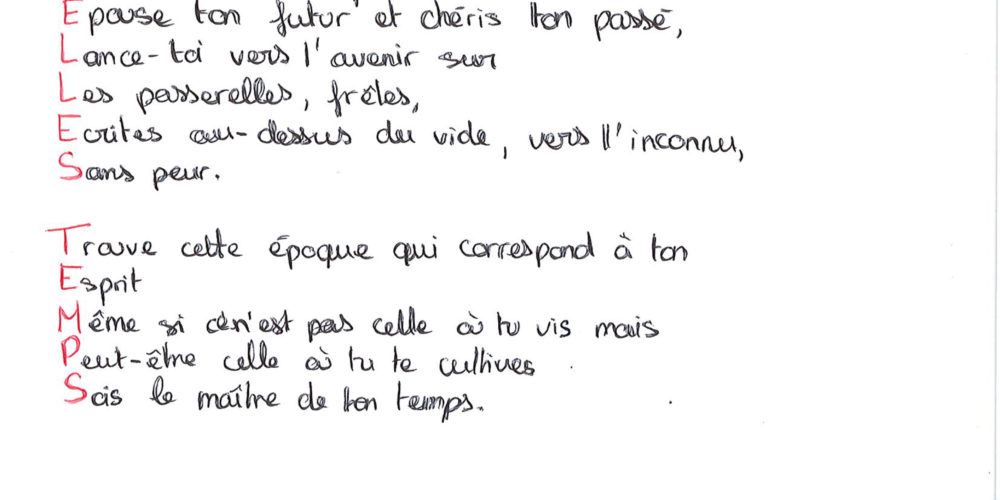 Epouse ton futur et chéris ton passé,
Lance-toi vers l'avenir sur
Les passerelles, frêles,
Ecrites au-dessus du vide, vers l'inconnu,
Sans peur.
Trouve cette époque qui correspond à ton
Esprit
Même si ce n'est pas celle où tu vis mais
Peut-être celle où tu te cultives
Sois le maître de ton temps.